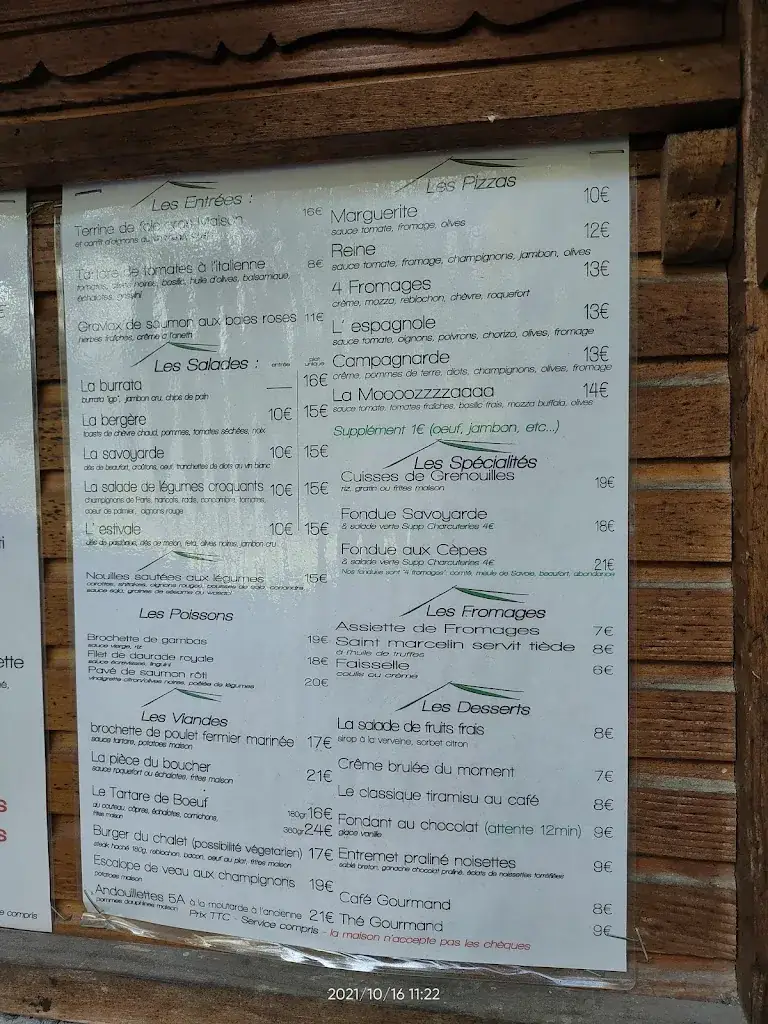 Les Entrées :
Terrine de foie gras Maison 16€
et confit d'oignons
Tartare de tomates à l'italienne 8€
tomates, olives noires, basilic, huile d'olives, balsamique,
échalotes, gressini
Gravlax de saumon aux baies roses 11€
herbes fraîches, crème à l'aneth
Les Salades : entrée plat unique
La burrata 16€
burrata "igp", jambon cru, chips de pain
La bergère 10€ 15€
toasts de chèvre chaud, pommes, tomates séchées, noix
La savoyarde 10€ 15€
dés de beaufort, croûtons, oeuf, tranchettes de diots au vin blanc
La salade de légumes croquants 10€ 15€
champignons de Paris, haricots, radis, concombre, tomates,
coeur de palmier, oignons rouge
L' estivale 10€ 15€
dés de pastèque, dés de melon, feta, olives noires, jambon cru
Nouilles sautées aux légumes 15€
carottes, shiitakes, oignons rouges, pousses de soja, coriandre
sauce soja, graines de sésame au wasabi
Les Poissons
Brochette de gambas 19€
sauce vierge, riz
Filet de daurade royale 18€
sauce écrevisses, linguini
Pavé de saumon rôti 20€
vinaigrette citron/olives noires, poêlée de légumes
Les Viandes
brochette de poulet fermier marinée 17€
sauce tartare, potatoes maison
La pièce du boucher 21€
sauce roquefort ou échalotes, frites maison
Le Tartare de Boeuf
au couteau, câpres, échalotes, cornichons, 180gr 16€
frites maison 360gr 24€
Burger du chalet (possibilité végétarien) 17€
steak haché 180g, reblochon, bacon, oeuf au plat, frites maison
Escalope de veau aux champignons 19€
potatoes maison
Andouillettes 5A à la moutarde à l'ancienne 21€
pommes dauphines maison
Les Pizzas
Marguerite 10€
sauce tomate, fromage, olives
Reine 12€
sauce tomate, fromage, champignons, jambon, olives
4 Fromages 13€
crème, mozza, reblochon, chèvre, roquefort
L' espagnole 13€
sauce tomate, oignons, poivrons, chorizo, olives, fromage
Campagnarde 13€
crème, pommes de terre, diots, champignons, olives, fromage
La Moooozzzzaaaa 14€
sauce tomate, tomates fraîches, basilic frais, mozza buffala, olives
Supplément 1€ (oeuf, jambon, etc...)
Les Spécialités
Cuisses de Grenouilles 19€
riz, gratin ou frites maison
Fondue Savoyarde 18€
& salade verte Supp Charcuteries 4€
Fondue aux Cèpes 21€
& salade verte Supp Charcuteries 4€
Nos fondues sont "4 fromages", comté, meule de Savoie, beaufort, abondance
Les Fromages
Assiette de Fromages 7€
Saint marcelin servit tiède 8€
à l'huile de truffes
Faisselle 6€
coulis ou crème
Les Desserts
La salade de fruits frais 8€
sirop à la verveine, sorbet citron
Crême brulée du moment 7€
Le classique tiramisu au café 8€
Fondant au chocolat (attente 12min) 9€
glace vanille
Entremet praliné noisettes 9€
sablé breton, ganache chocolat praliné, éclats de noisettes torréfiées
Café Gourmand 8€
Thé Gourmand 9€
Prix TTC - Service compris - la maison n'accepte pas les chèques
compris
2021/10/16 11:22